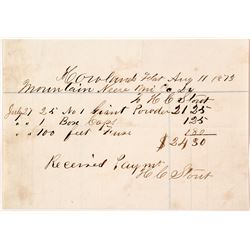 Howland Flat Aug 11 1873
Mountain Neere Mni Co Dr
To H C Stout
July 27 25 No 1 Giant Powder 21 25
" " 1 Box Caps 1 25
" " 100 feet Fuse 1 80
$24 30
Received Paymt
H C Stout